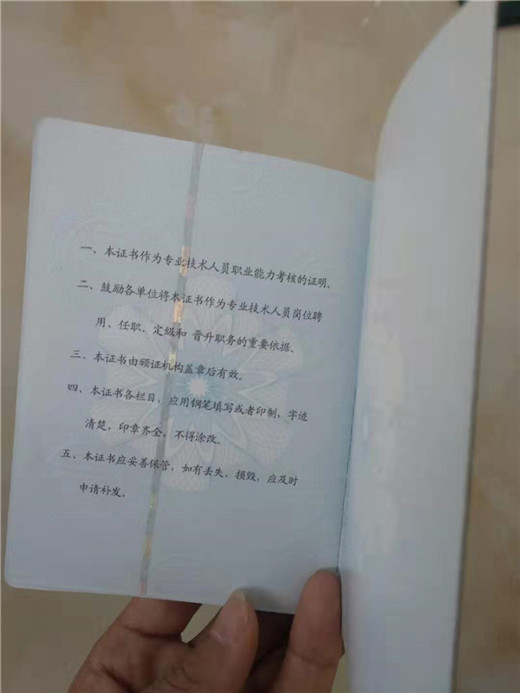 一、本证书作为专业技术人员职业能力考核的证明、
二、鼓励各单位将本证书作为专业技术人员岗位聘
用、任职、定级和 晋升职务的重要依据、
三、本证书由颁证机构盖章后有效。
四、本证书各栏目，应用钢笔填写或者印制，字迹
清楚，印章齐全，不得涂改。
五、本证书应妥善保管，如有丢失、损毁，应及时
申请补发。